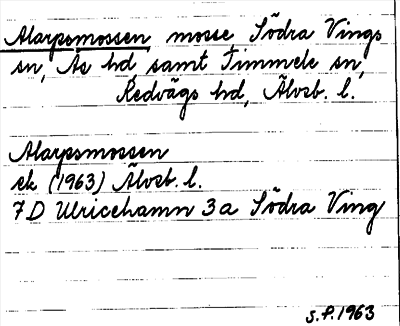 Alarpsmossen mosse Södra Vings
sn, Ås hd, samt Timmele sn,
Redvägs hd, Älvsb. l.
Alarpsmossen
ek (1963) Älvsb. l.
7D Ulricehamn 3a Södra Ving
S.F. 1963